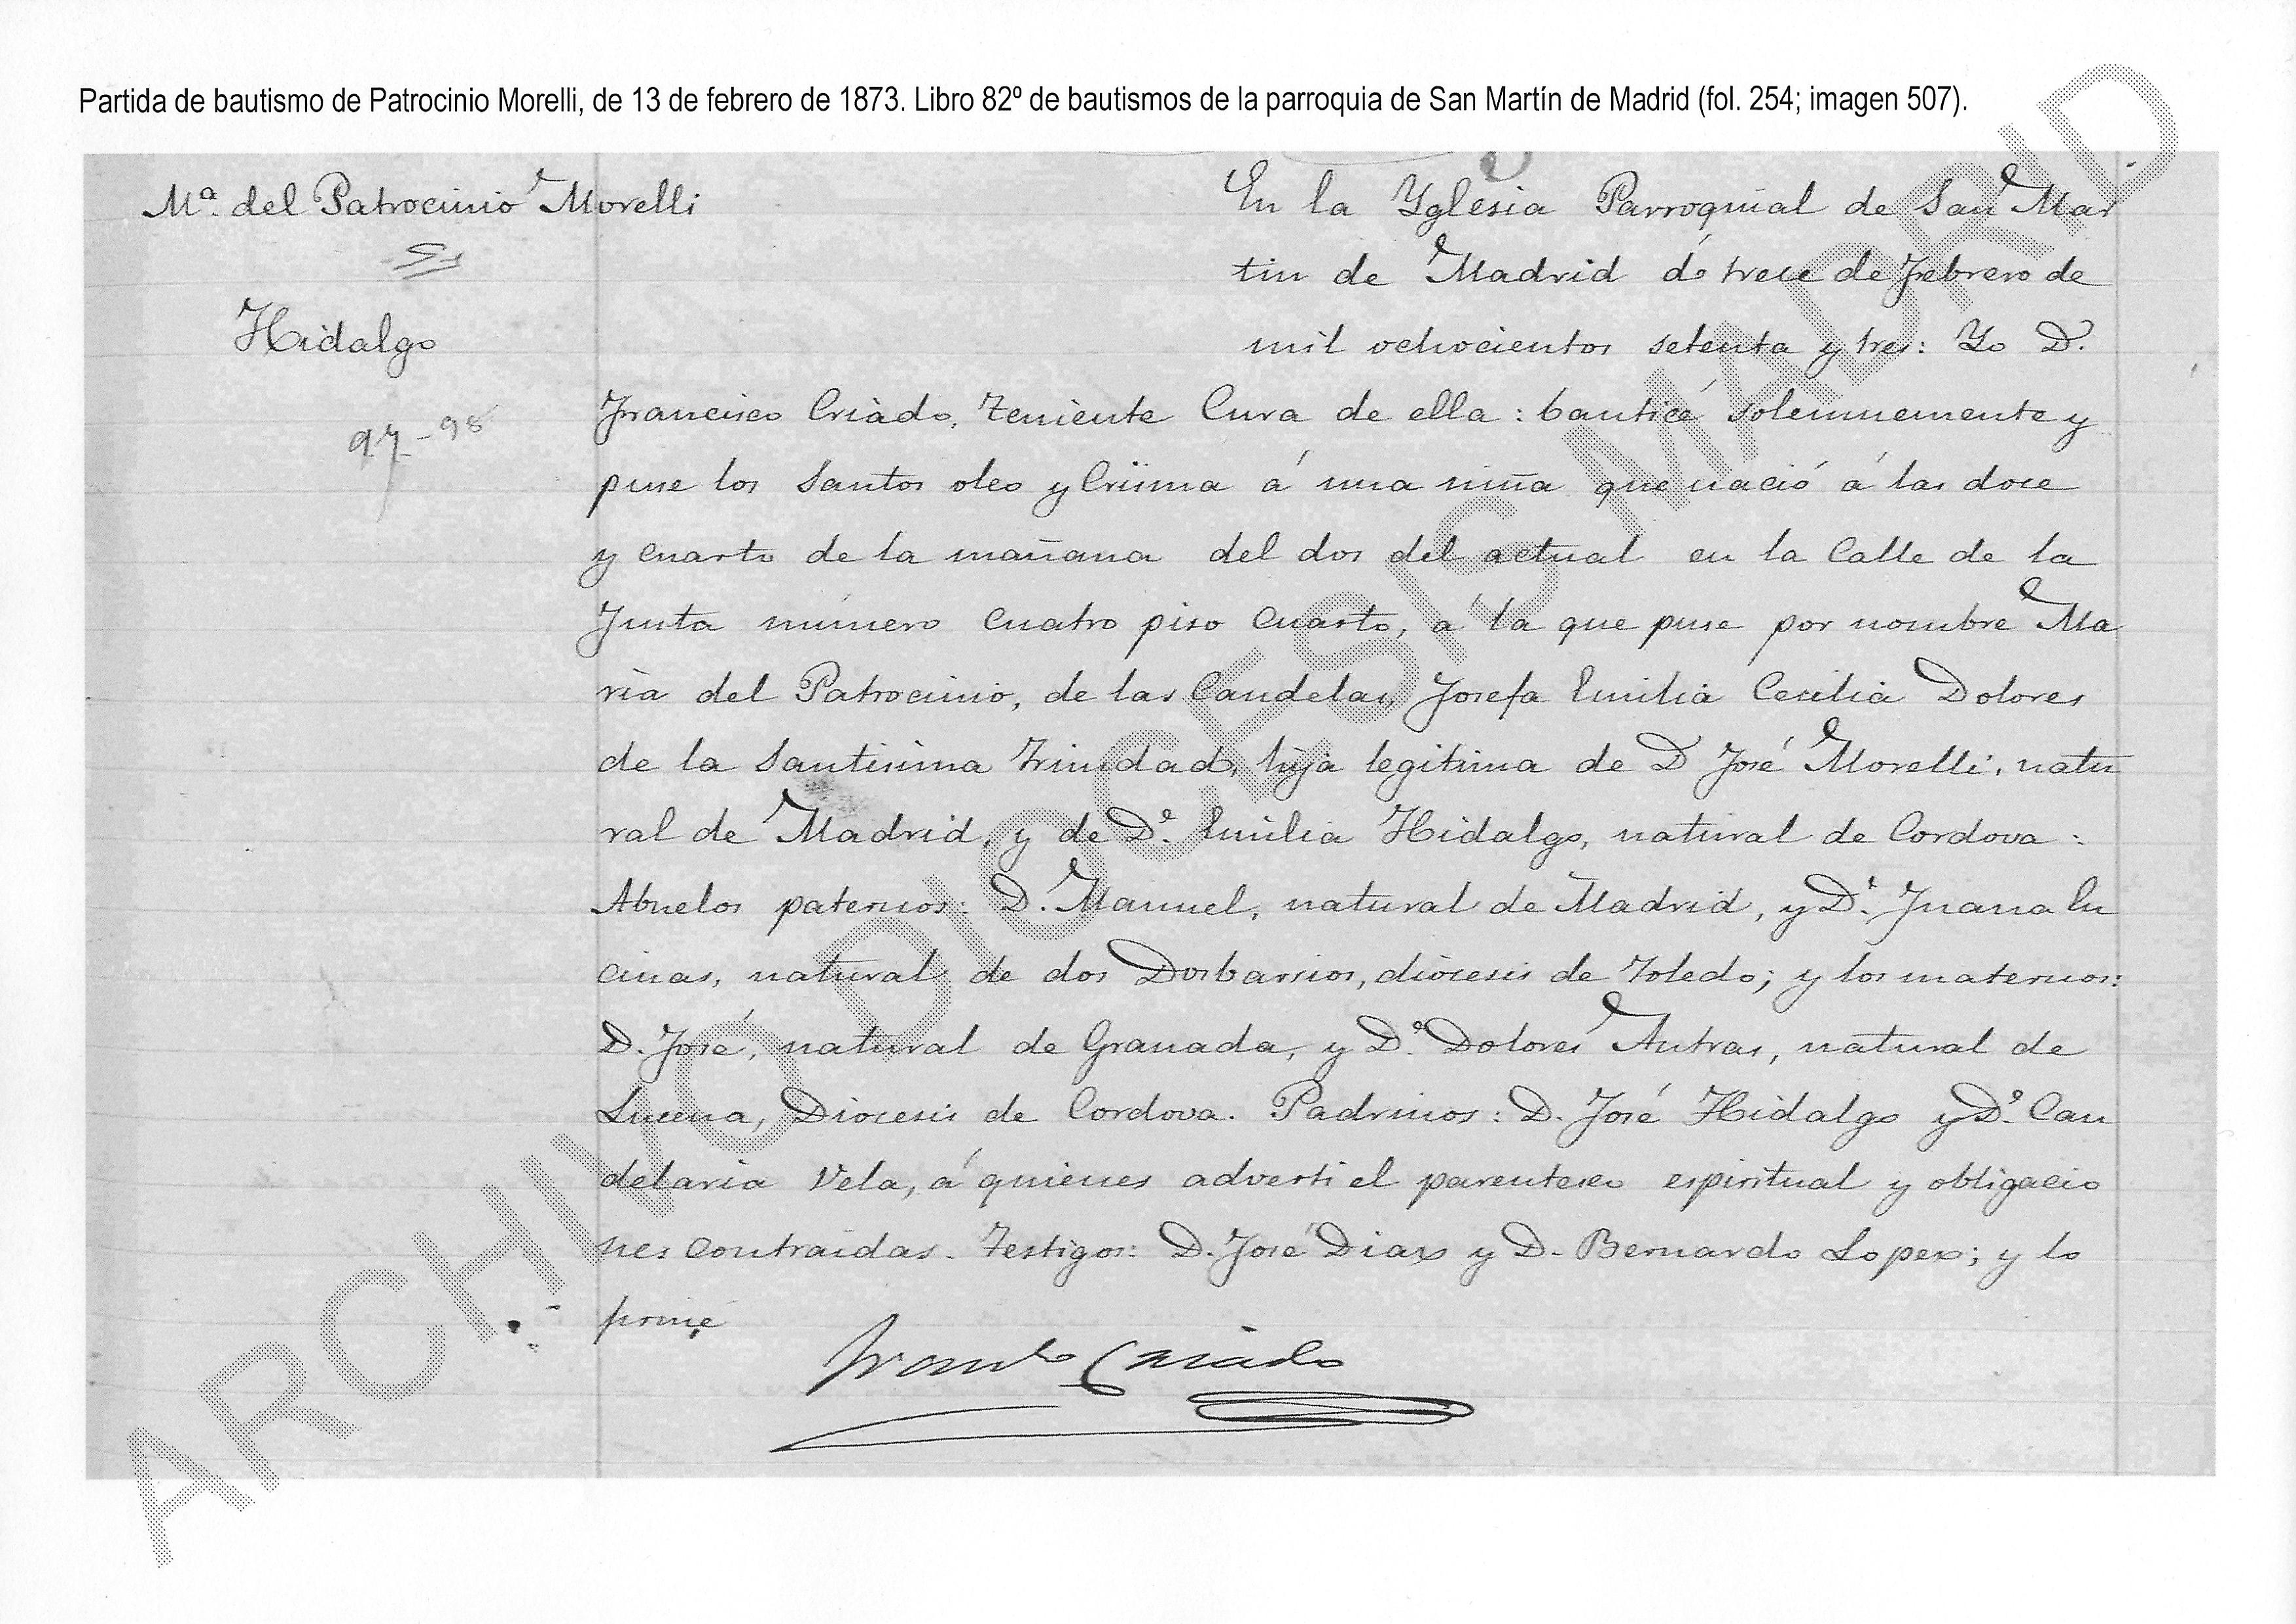 Partida de bautismo de Patrocinio Morelli, de 13 de febrero de 1873. Libro 82º de bautismos de la parroquia de San Martín de Madrid (fol. 254; imagen 507).
Mª. del Patrocinio Morelli
Hidalgo
97-98
En la Yglesia Parroquial de San Mar
tin de Madrid á trece de Febrero de
mil ochocientos setenta y tres: Yo D.
Francisco Criado, Teniente Cura de ella: bauticé solemnemente y
puse los Santos oleo y Crisma á una niña que nació á las doce
y cuarto de la mañana del dos del actual en la Calle de la
Justa número cuatro piso cuarto, á la que puse por nombre Ma
ria del Patrocinio, de las Candelas, Josefa Emilia Cecilia Dolores
de la Santisima Trinidad, hija legitima de D José Morelli, natu
ral de Madrid, y de Dª. Emilia Hidalgo, natural de Cordova:
Abuelos paternos: D. Manuel, natural de Madrid, y Dª. Juana En
cinas, natural de dos Dosbarrios, diócesis de Toledo; y los maternos:
D. José, natural de Granada, y Dª. Dolores Antras, natural de
Lucena, Diocesis de Cordova. Padrinos: D. José Hidalgo y Dª. Can
delaria Vela, á quienes adverti el parentesco espiritual y obligacio
nes contraidas. Testigos: D. José Diaz y D. Bernardo Lopez; y lo
firmé
Franco Criado
ARCHIVO DIOCESIS MADRID